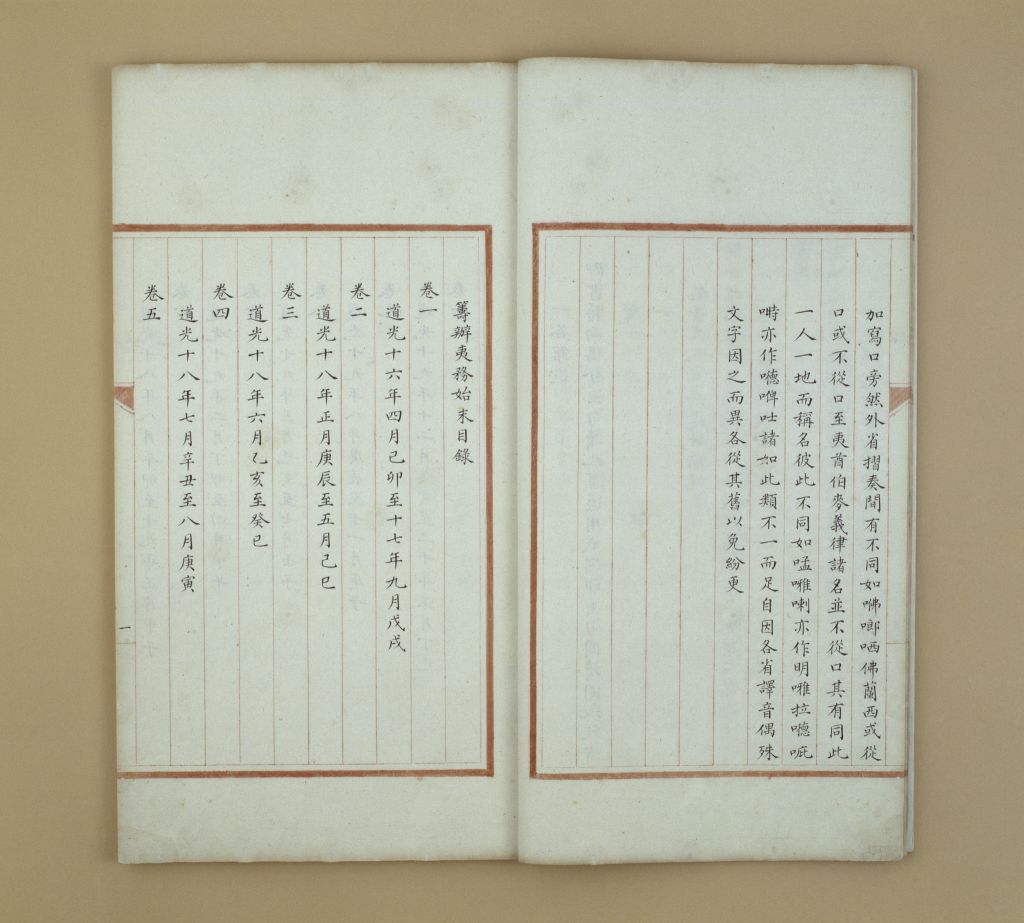 加寫口旁然外省摺奏間有不同如咈啷哂佛蘭西或從
口或不從口至夷酋伯麥義律諸名並不從口其有同此
一人一地而稱名彼此不同如嗌㗑喇亦作明㗑拉嚧呃
時亦作嚧啤吐諸如此類不一而足自因各省譯音偶殊
文字因之而異各從其舊以免紛更
籌辦夷務始末目錄
卷一
道光十六年四月己卯至十七年九月戊戌
卷二
道光十八年正月庚辰至五月己巳
卷三
道光十八年六月乙亥至癸巳
卷四
道光十八年七月辛丑至八月庚寅
卷五
一